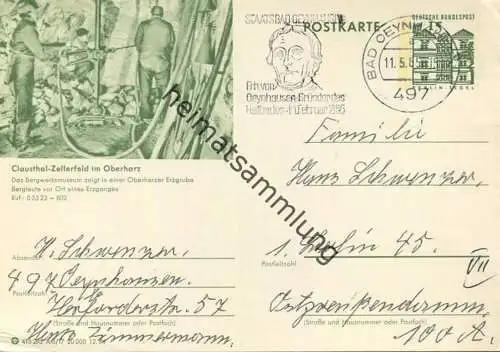 STAATSBAD OEYNHAUSEN
POSTKARTE
DEUTSCHE BUNDESPOST
15
BERLIN-TEGEL
BAD OEYNH
11.5.6
497
Frh. von
Oeynhausen-Gründer des
Heilbades-1. Februar 1865
Clausthal-Zellerfeld im Oberharz
Das Bergwerksmuseum zeigt in einer Oberharzer Erzgrube
Bergleute vor Ort eines Erzganges
Ruf: 0 53 23 – 802
heimatsammlung
Familie
Hans Schwenzer,
Absender
H. Schwenzer,
1 Berlin 45.
Postleitzahl
VII
497 Oeynhausen.
Postleitzahl
Herforderstr. 57
(Straße und Hausnummer oder Postfach)
Zimmermann.
(Straße und Hausnummer oder Postfach)
100 A.